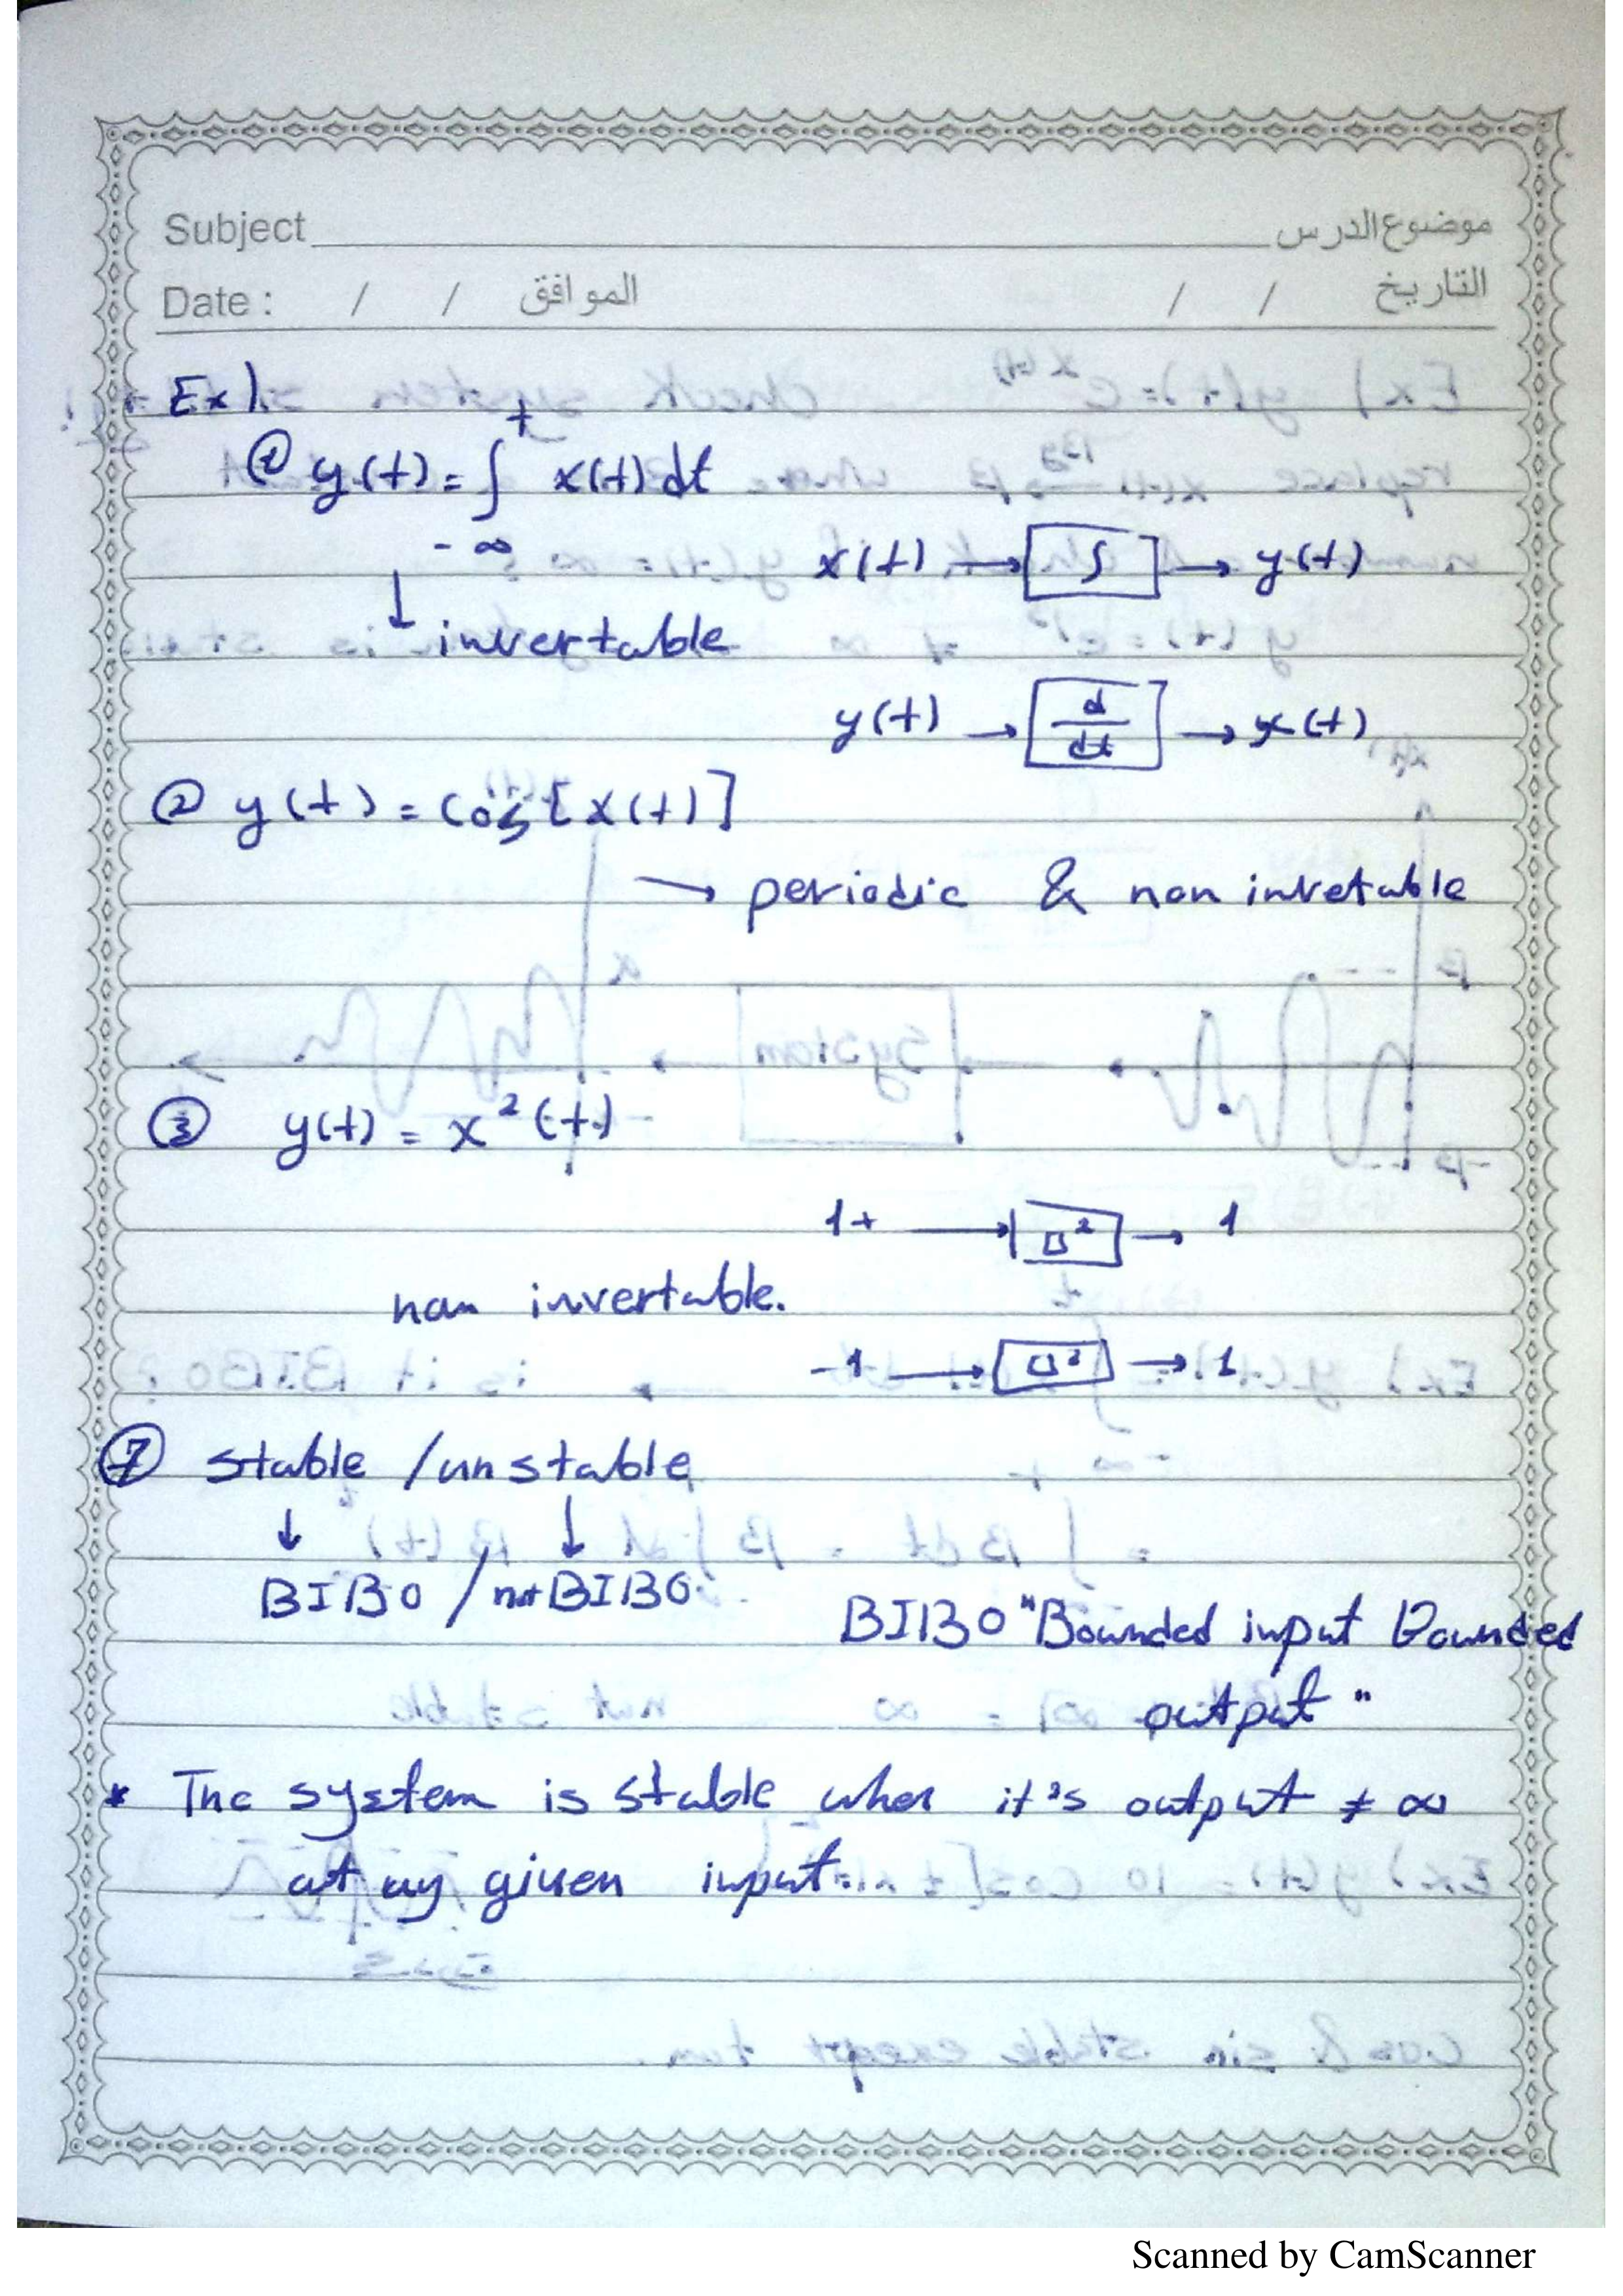 Subject موضوع الدرس
Date : / / الموافق / / التاريخ
Ex)
① y(t) = ∫ x(t) dt
t
-∞
x(t) → ∫ → y(t)
↓ invertable
y(t) → d/dt → x(t)
② y(t) = Cos [x(t)]
→ periodic & non invetable
③ y(t) = x²(t)
1+ → □² → 1
non invertable.
-1 → □² → 1
⑦ stable / unstable
↓ ↓
BIBO / not BIBO
BIBO "Bounded input Bounded
output"
* The system is stable when it's output ≠ ∞
at any given input
Scanned by CamScanner